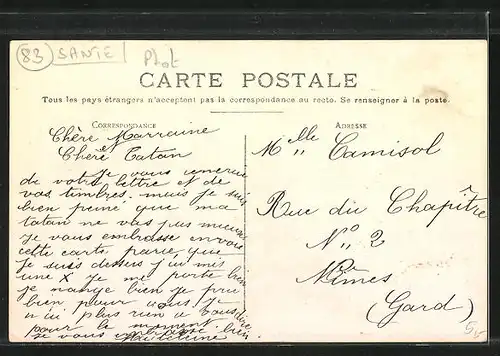 83 SANTE Phot
CARTE POSTALE
Tous les pays étrangers n'acceptent pas la correspondance au recto. Se renseigner à la poste.
CORRESPONDANCE
ADRESSE
Chère Marraine
et
Chère Tatan
Je vous remercie
de votre lettre et de
vos timbres. mais je suis
bien peiné que ma
tatan ne vas pas mieux
Je vous embrasse envoie
cette carte parce que
Je suis dessus j'ai mis
une X Je me porte bien
je mange bien Je prie
bien pour vous Je
n'ai plus rien a vous dire
pour le moment
Je vous embrasse bien
Melle Camisol
Rue du Chapître
No 2
Nîmes
(Gard)